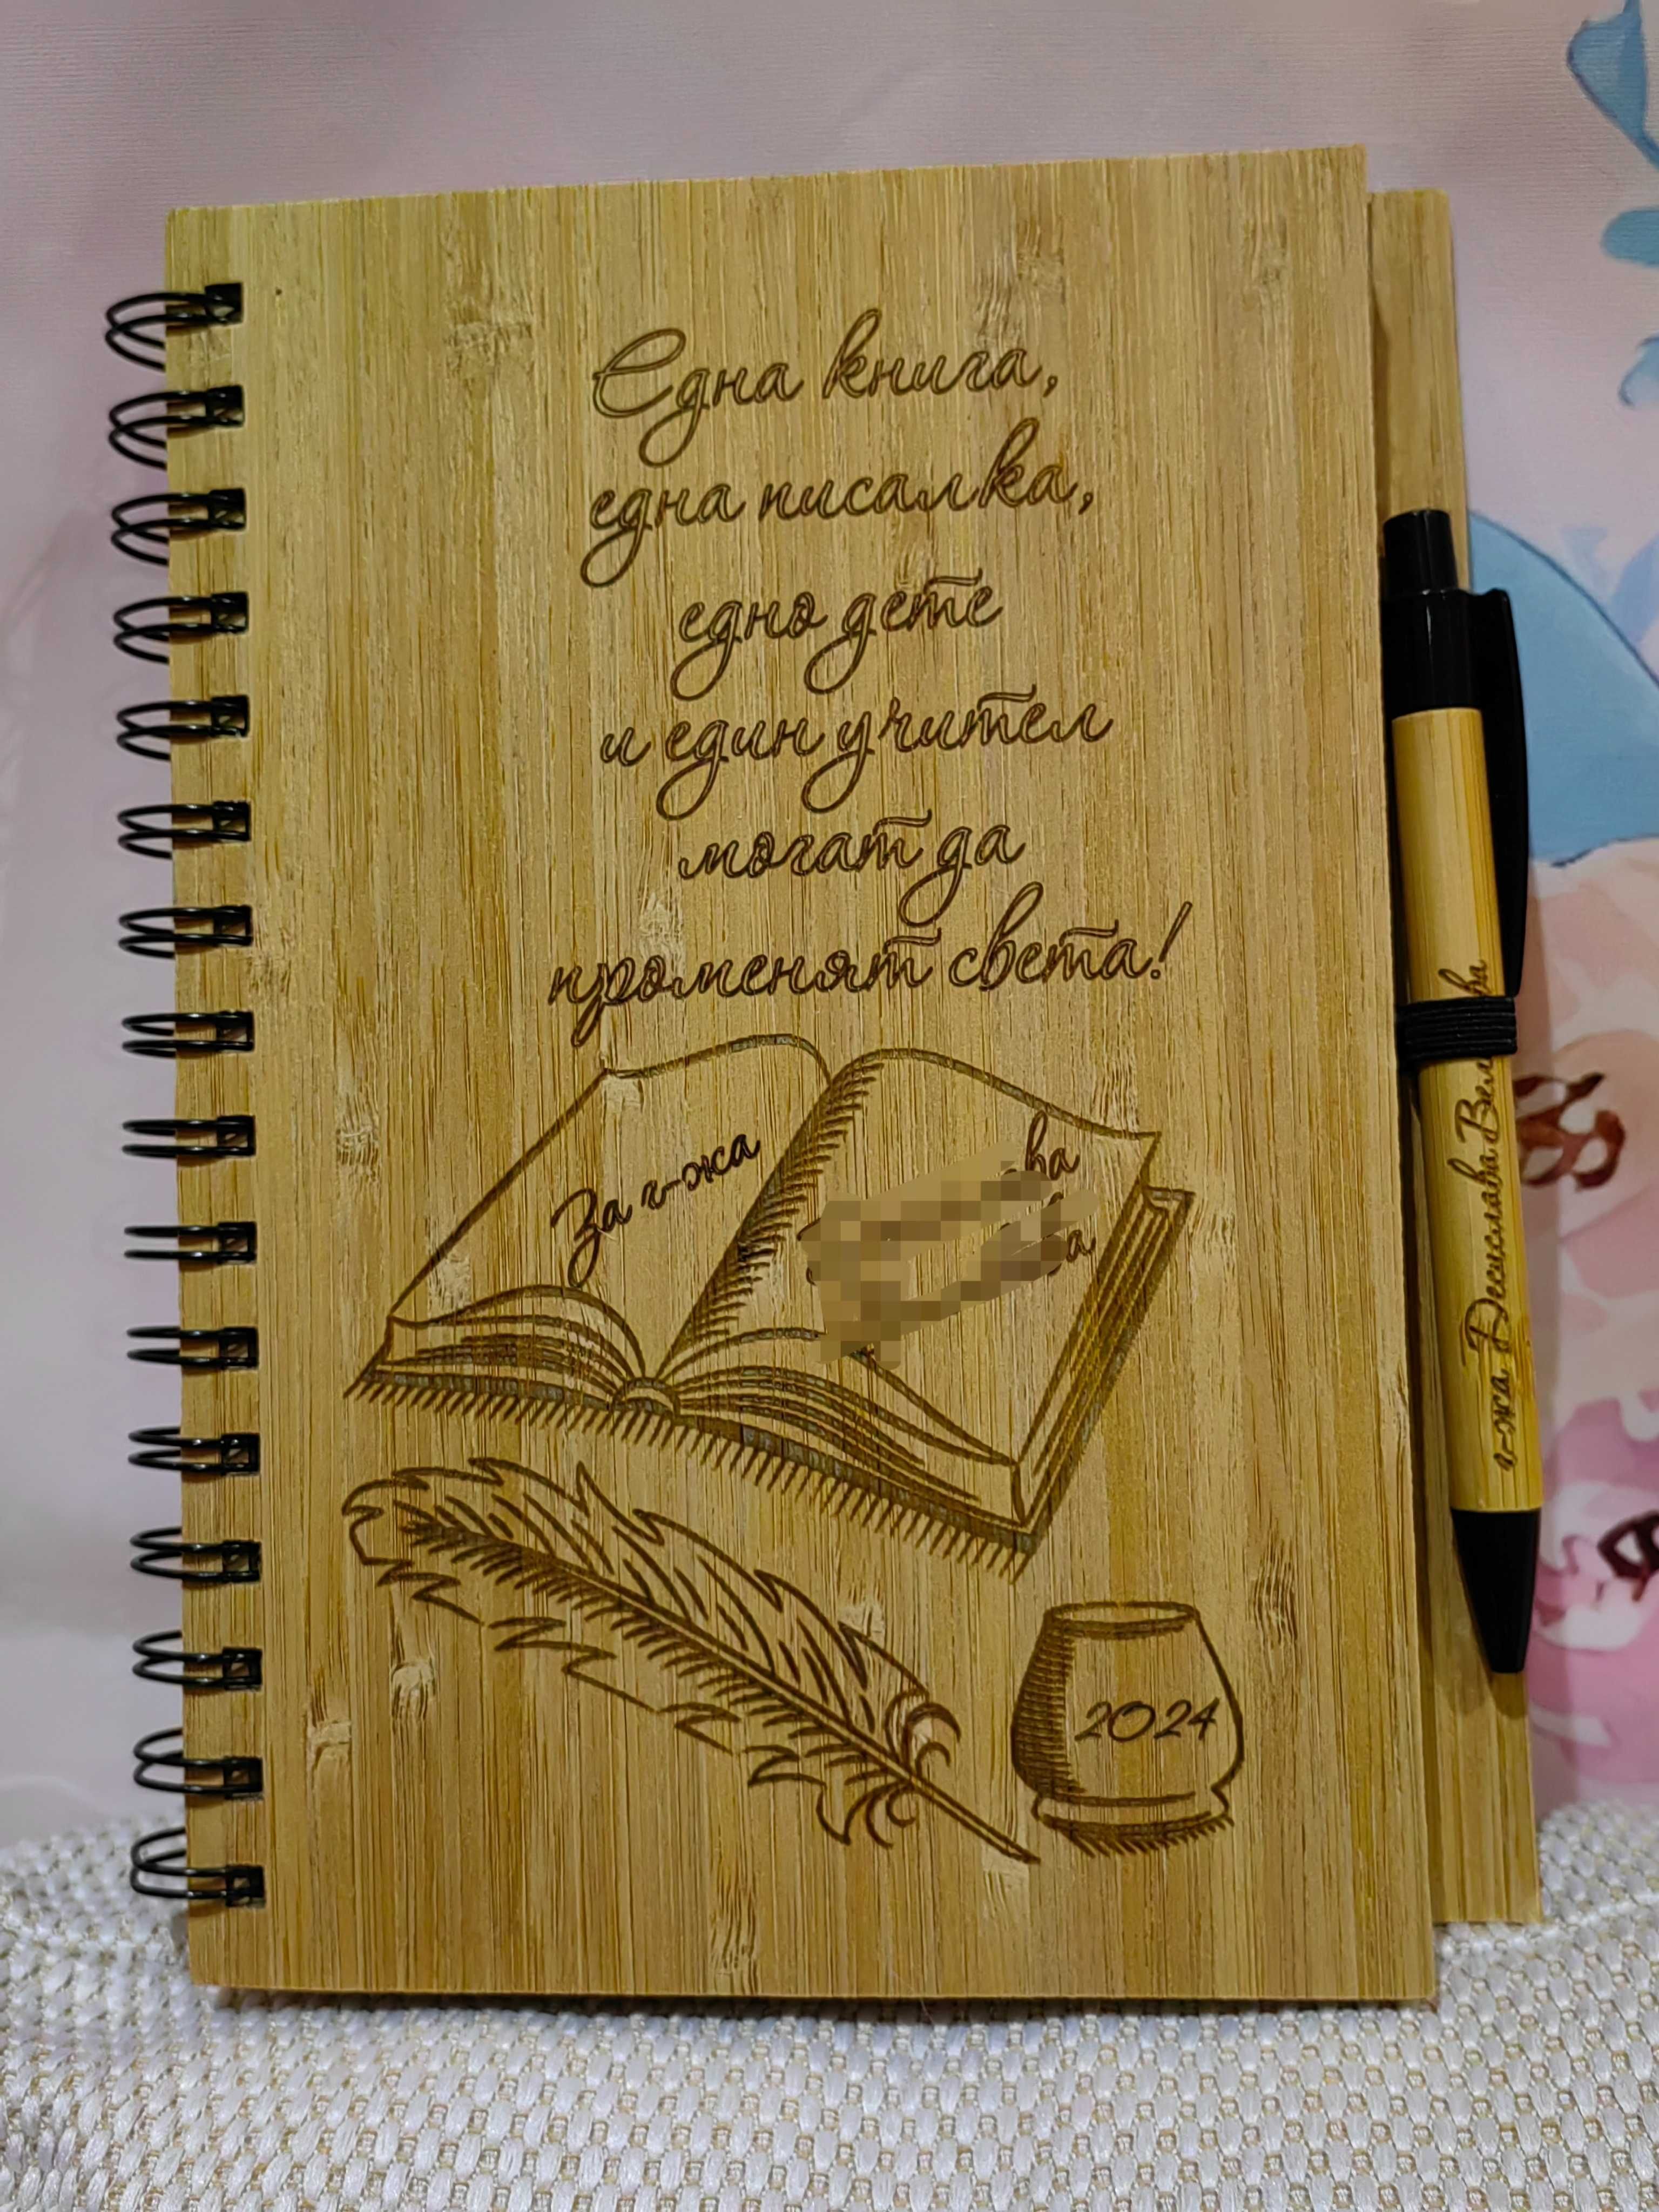 Една книга,
една писалка,
едно дете
и един учител
могат да
променят света!
За г-жа
2024
г-жа Десислава